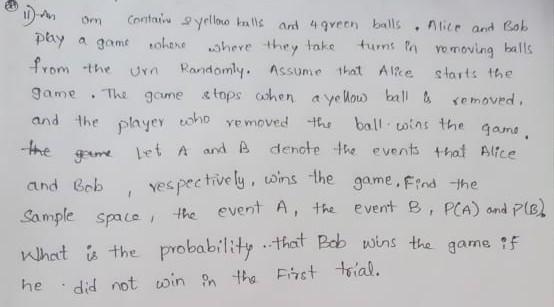 11) An orn contains 2 yellow balls and 4 green balls. Alice and Bob
play a game where where they take turns in removing balls
from the urn Randomly. Assume that Alice starts the
game. The game stops when a yellow ball is removed,
and the player who removed the ball wins the game.
the game Let A and B denote the events that Alice
and Bob, respectively, wins the game. Find the
Sample space, the event A, the event B, P(A) and P(B).
What is the probability..that Bob wins the game if
he did not win in the First trial.